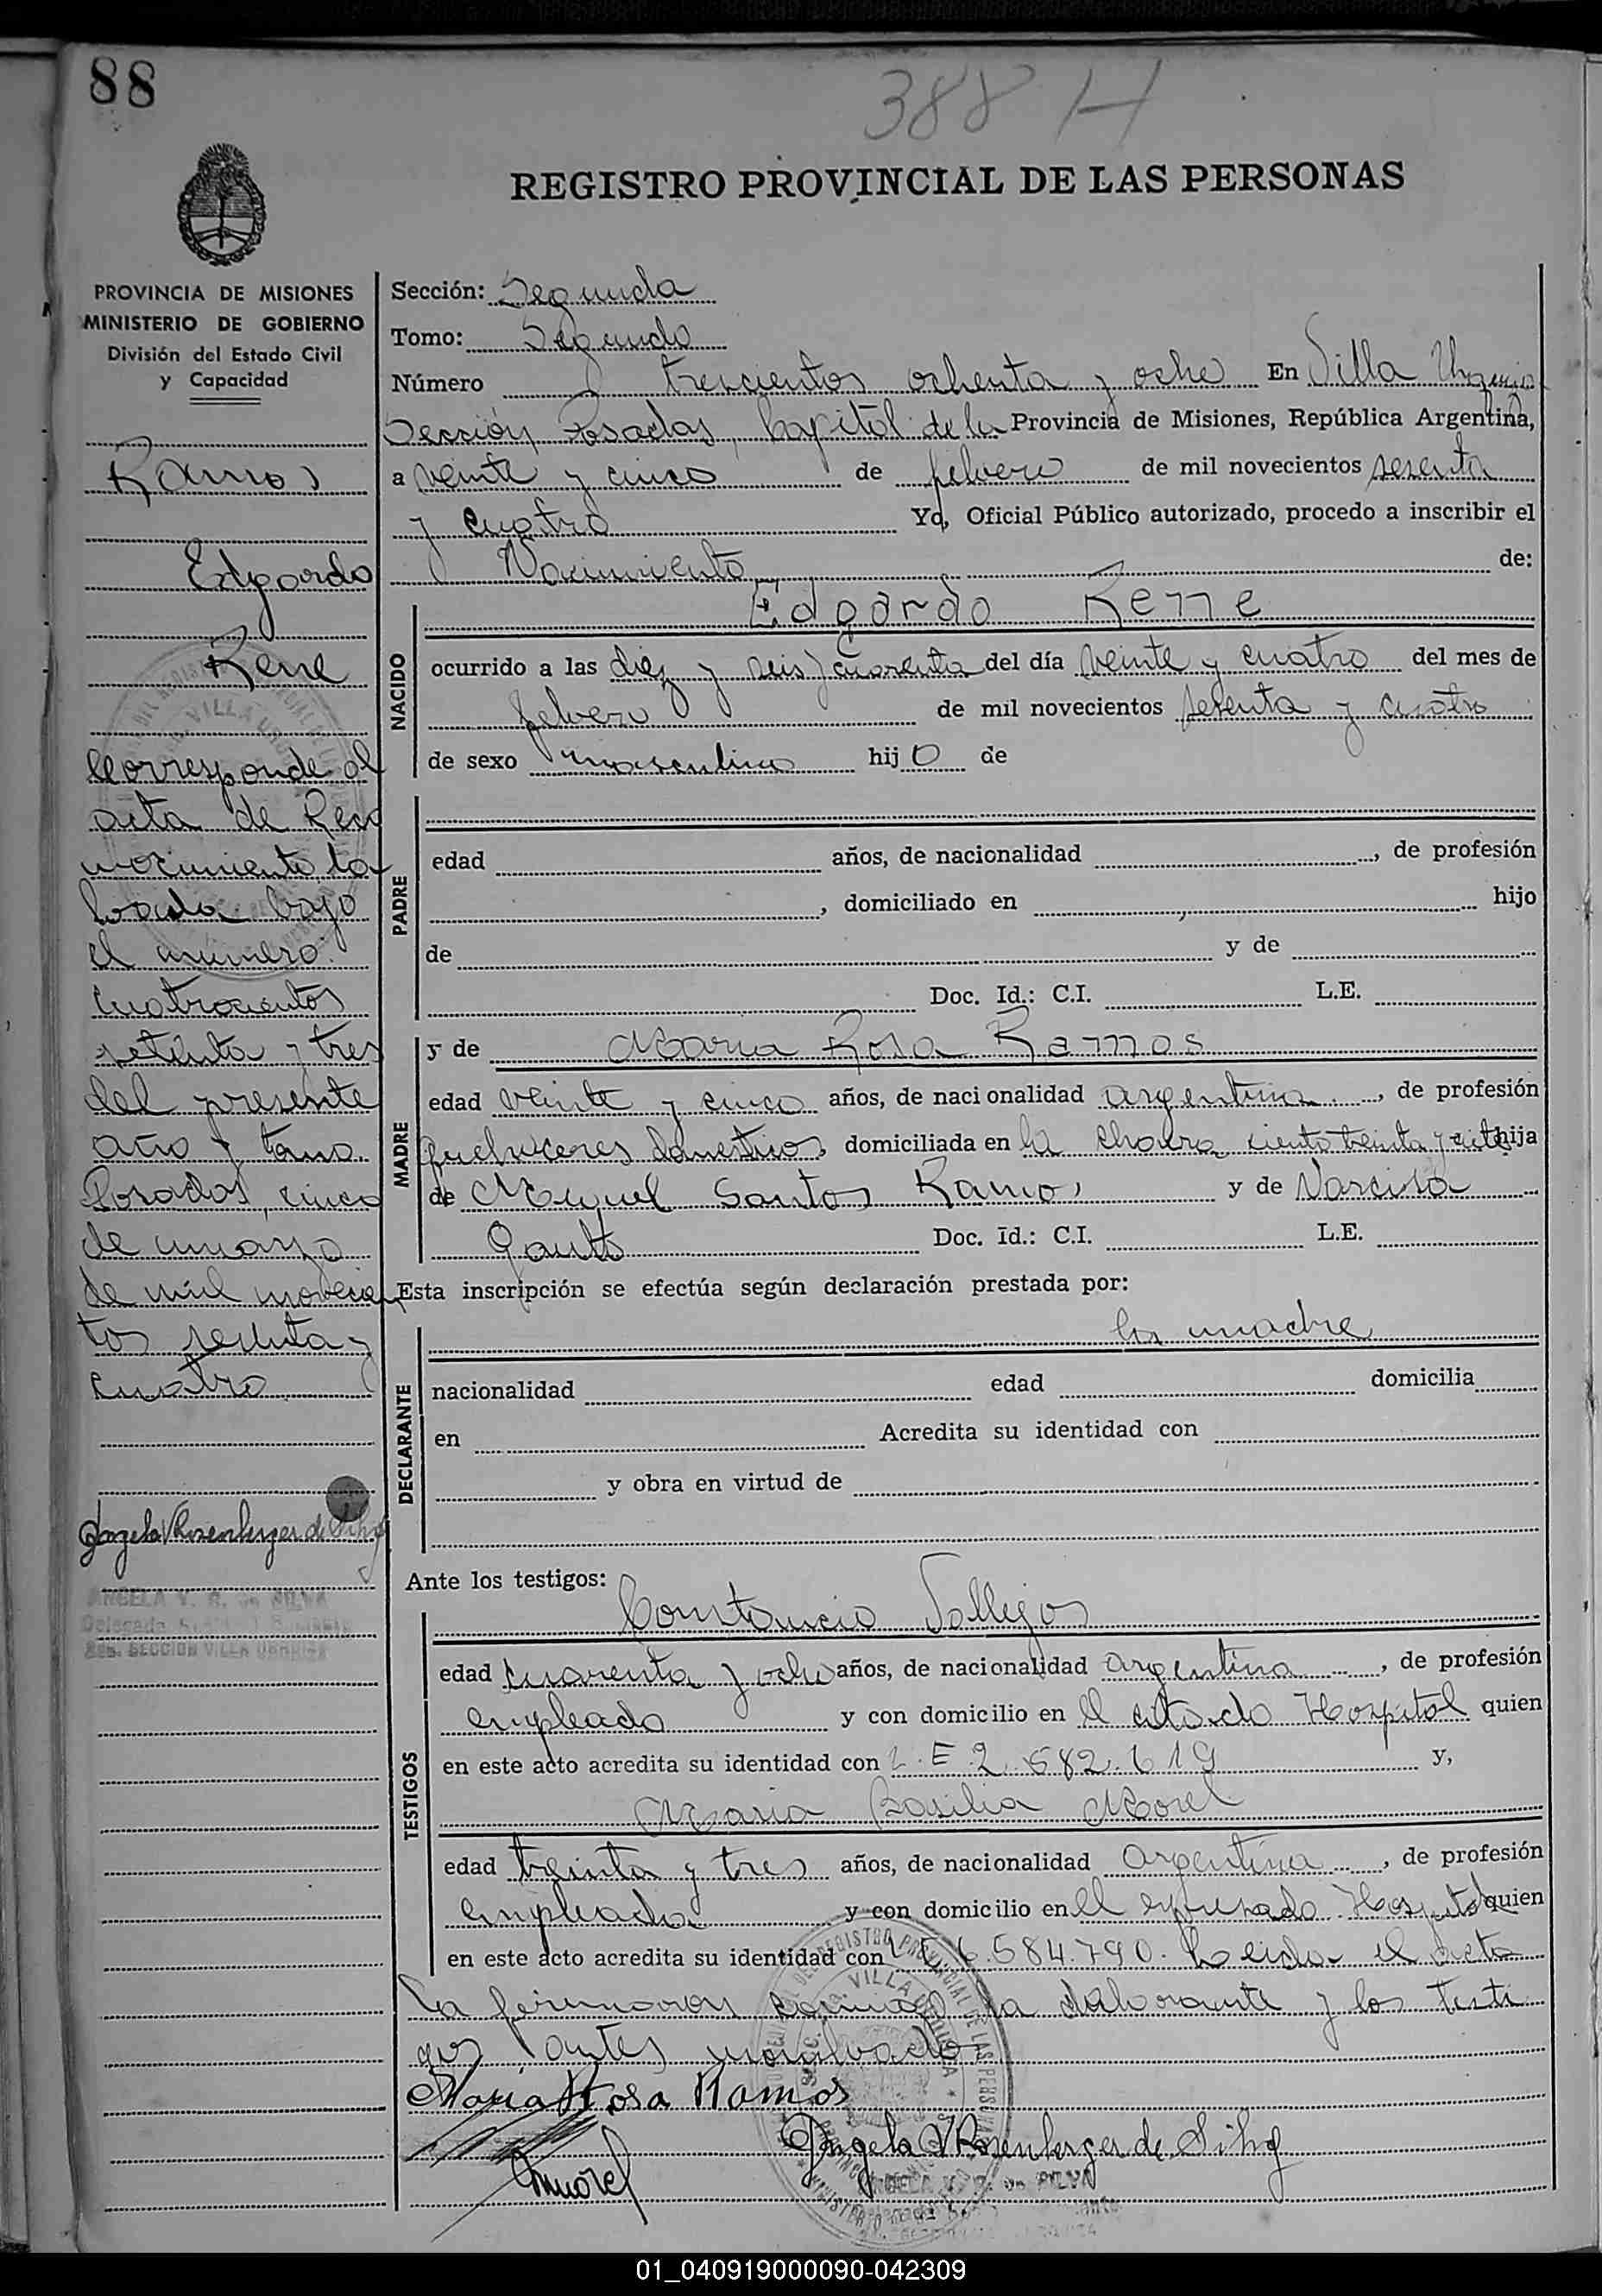 88
388 H
REGISTRO PROVINCIAL DE LAS PERSONAS
PROVINCIA DE MISIONES
MINISTERIO DE GOBIERNO
División del Estado Civil
y Capacidad
Ramos
Edgardo
Rene
Corresponde al
acta de Reco
nocimiento la
brada bajo
el numero
cuatrocientos
setenta y tres
del presente
año y tomo.
Posadas, cinco
de marzo
de mil novecien
tos sesenta y
cuatro
Angela V Rosenberger de Silva
ANGELA V. R. de SILVA
SECCION VILLA URQUIZA
Sección: Segunda
Tomo: Segundo
Número trescientos ochenta y ocho En Villa Urquiza
Sección Posadas, Capital de la Provincia de Misiones, República Argentina,
a veinte y cinco de febrero de mil novecientos sesenta
y cuatro Yo, Oficial Público autorizado, procedo a inscribir el
Nacimiento de:
NACIDO
Edgardo Rene
ocurrido a las diez y seis y cuarenta del día veinte y cuatro del mes de
febrero de mil novecientos sesenta y cuatro
de sexo masculino hijo de
PADRE
edad años, de nacionalidad , de profesión
, domiciliado en hijo
de y de
Doc. Id.: C.I. L.E.
MADRE
y de Maria Rosa Ramos
edad veinte y cinco años, de nacionalidad argentina, de profesión
quehaceres domesticos, domiciliada en la chacra ciento treinta y siete hija
de Miguel Santos Ramos y de Narcisa
Gauto Doc. Id.: C.I. L.E.
Esta inscripción se efectúa según declaración prestada por:
DECLARANTE
la madre
nacionalidad edad domicilia
en Acredita su identidad con
y obra en virtud de
Ante los testigos:
TESTIGOS
Constancio Vallejos
edad cuarenta y ocho años, de nacionalidad argentina, de profesión
empleado y con domicilio en el citado Hospital quien
en este acto acredita su identidad con L.E 2.582.619 y,
Maria Basilia Morel
edad treinta y tres años, de nacionalidad argentina, de profesión
empleada y con domicilio en el expresado Hospital quien
en este acto acredita su identidad con L E 6.584.790. Leida el acta
la firmaron conmigo la declarante y los testi
gos antes nombrados
Maria Rosa Ramos
Angela V Rosenberger de Silva
Bmorel
01_040919000090-042309